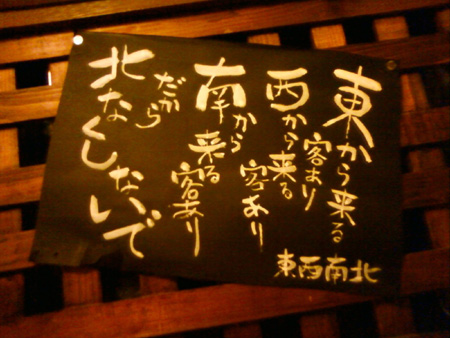 東から来る客あり
西から来る客あり
南から来る客あり
だから
北なくしないで
東西南北